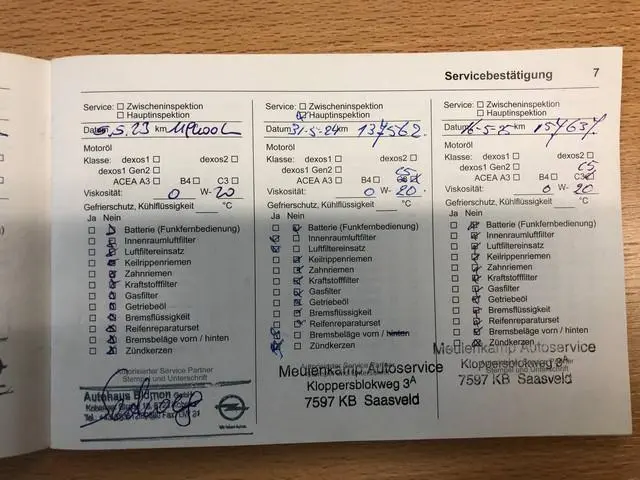 Servicebestätigung 7
Service: Zwischeninspektion
Hauptinspektion
Datum 5.5.23 km
Motoröl
Klasse: dexos1 dexos2
dexos1 Gen2
ACEA A3 B4 C3
Viskosität: 0 W- 20
Gefrierschutz, Kühlflüssigkeit °C
Ja Nein
Batterie (Funkfernbedienung)
Innenraumluftfilter
Luftfiltereinsatz
Keilrippenriemen
Zahnriemen
Kraftstofffilter
Gasfilter
Getriebeöl
Bremsflüssigkeit
Reifenreparaturset
Bremsbeläge vorn / hinten
Zündkerzen
Autorisierter Service Partner
Stempel und Unterschrift
Autohaus
Service: Zwischeninspektion
Hauptinspektion
Datum 31-5-24 km 137562.
Motoröl
Klasse: dexos1 dexos2
dexos1 Gen2 C5
ACEA A3 B4
Viskosität: 0 W- 20.
Gefrierschutz, Kühlflüssigkeit °C
Ja Nein
Batterie (Funkfernbedienung)
Innenraumluftfilter
Luftfiltereinsatz
Keilrippenriemen
Zahnriemen
Kraftstofffilter
Gasfilter
Getriebeöl
Bremsflüssigkeit
Reifenreparaturset
Bremsbeläge vorn / hinten
Zündkerzen
Medienkamp Autoservice
Kloppersblokweg 3A
7597 KB Saasveld
Service: Zwischeninspektion
Hauptinspektion
Datum 16-5-25 km 157637.
Motoröl
Klasse: dexos1 dexos2
dexos1 Gen2 C5
ACEA A3 B4 C3
Viskosität: 0 W- 20
Gefrierschutz, Kühlflüssigkeit °C
Ja Nein
Batterie (Funkfernbedienung)
Innenraumluftfilter
Luftfiltereinsatz
Keilrippenriemen
Zahnriemen
Kraftstofffilter
Gasfilter
Getriebeöl
Bremsflüssigkeit
Reifenreparaturset
Bremsbeläge vorn / hinten
Zündkerzen
Medienkamp Autoservice
Kloppersblokweg 3A
Stempel und Unterschrift
7597 KB Saasveld